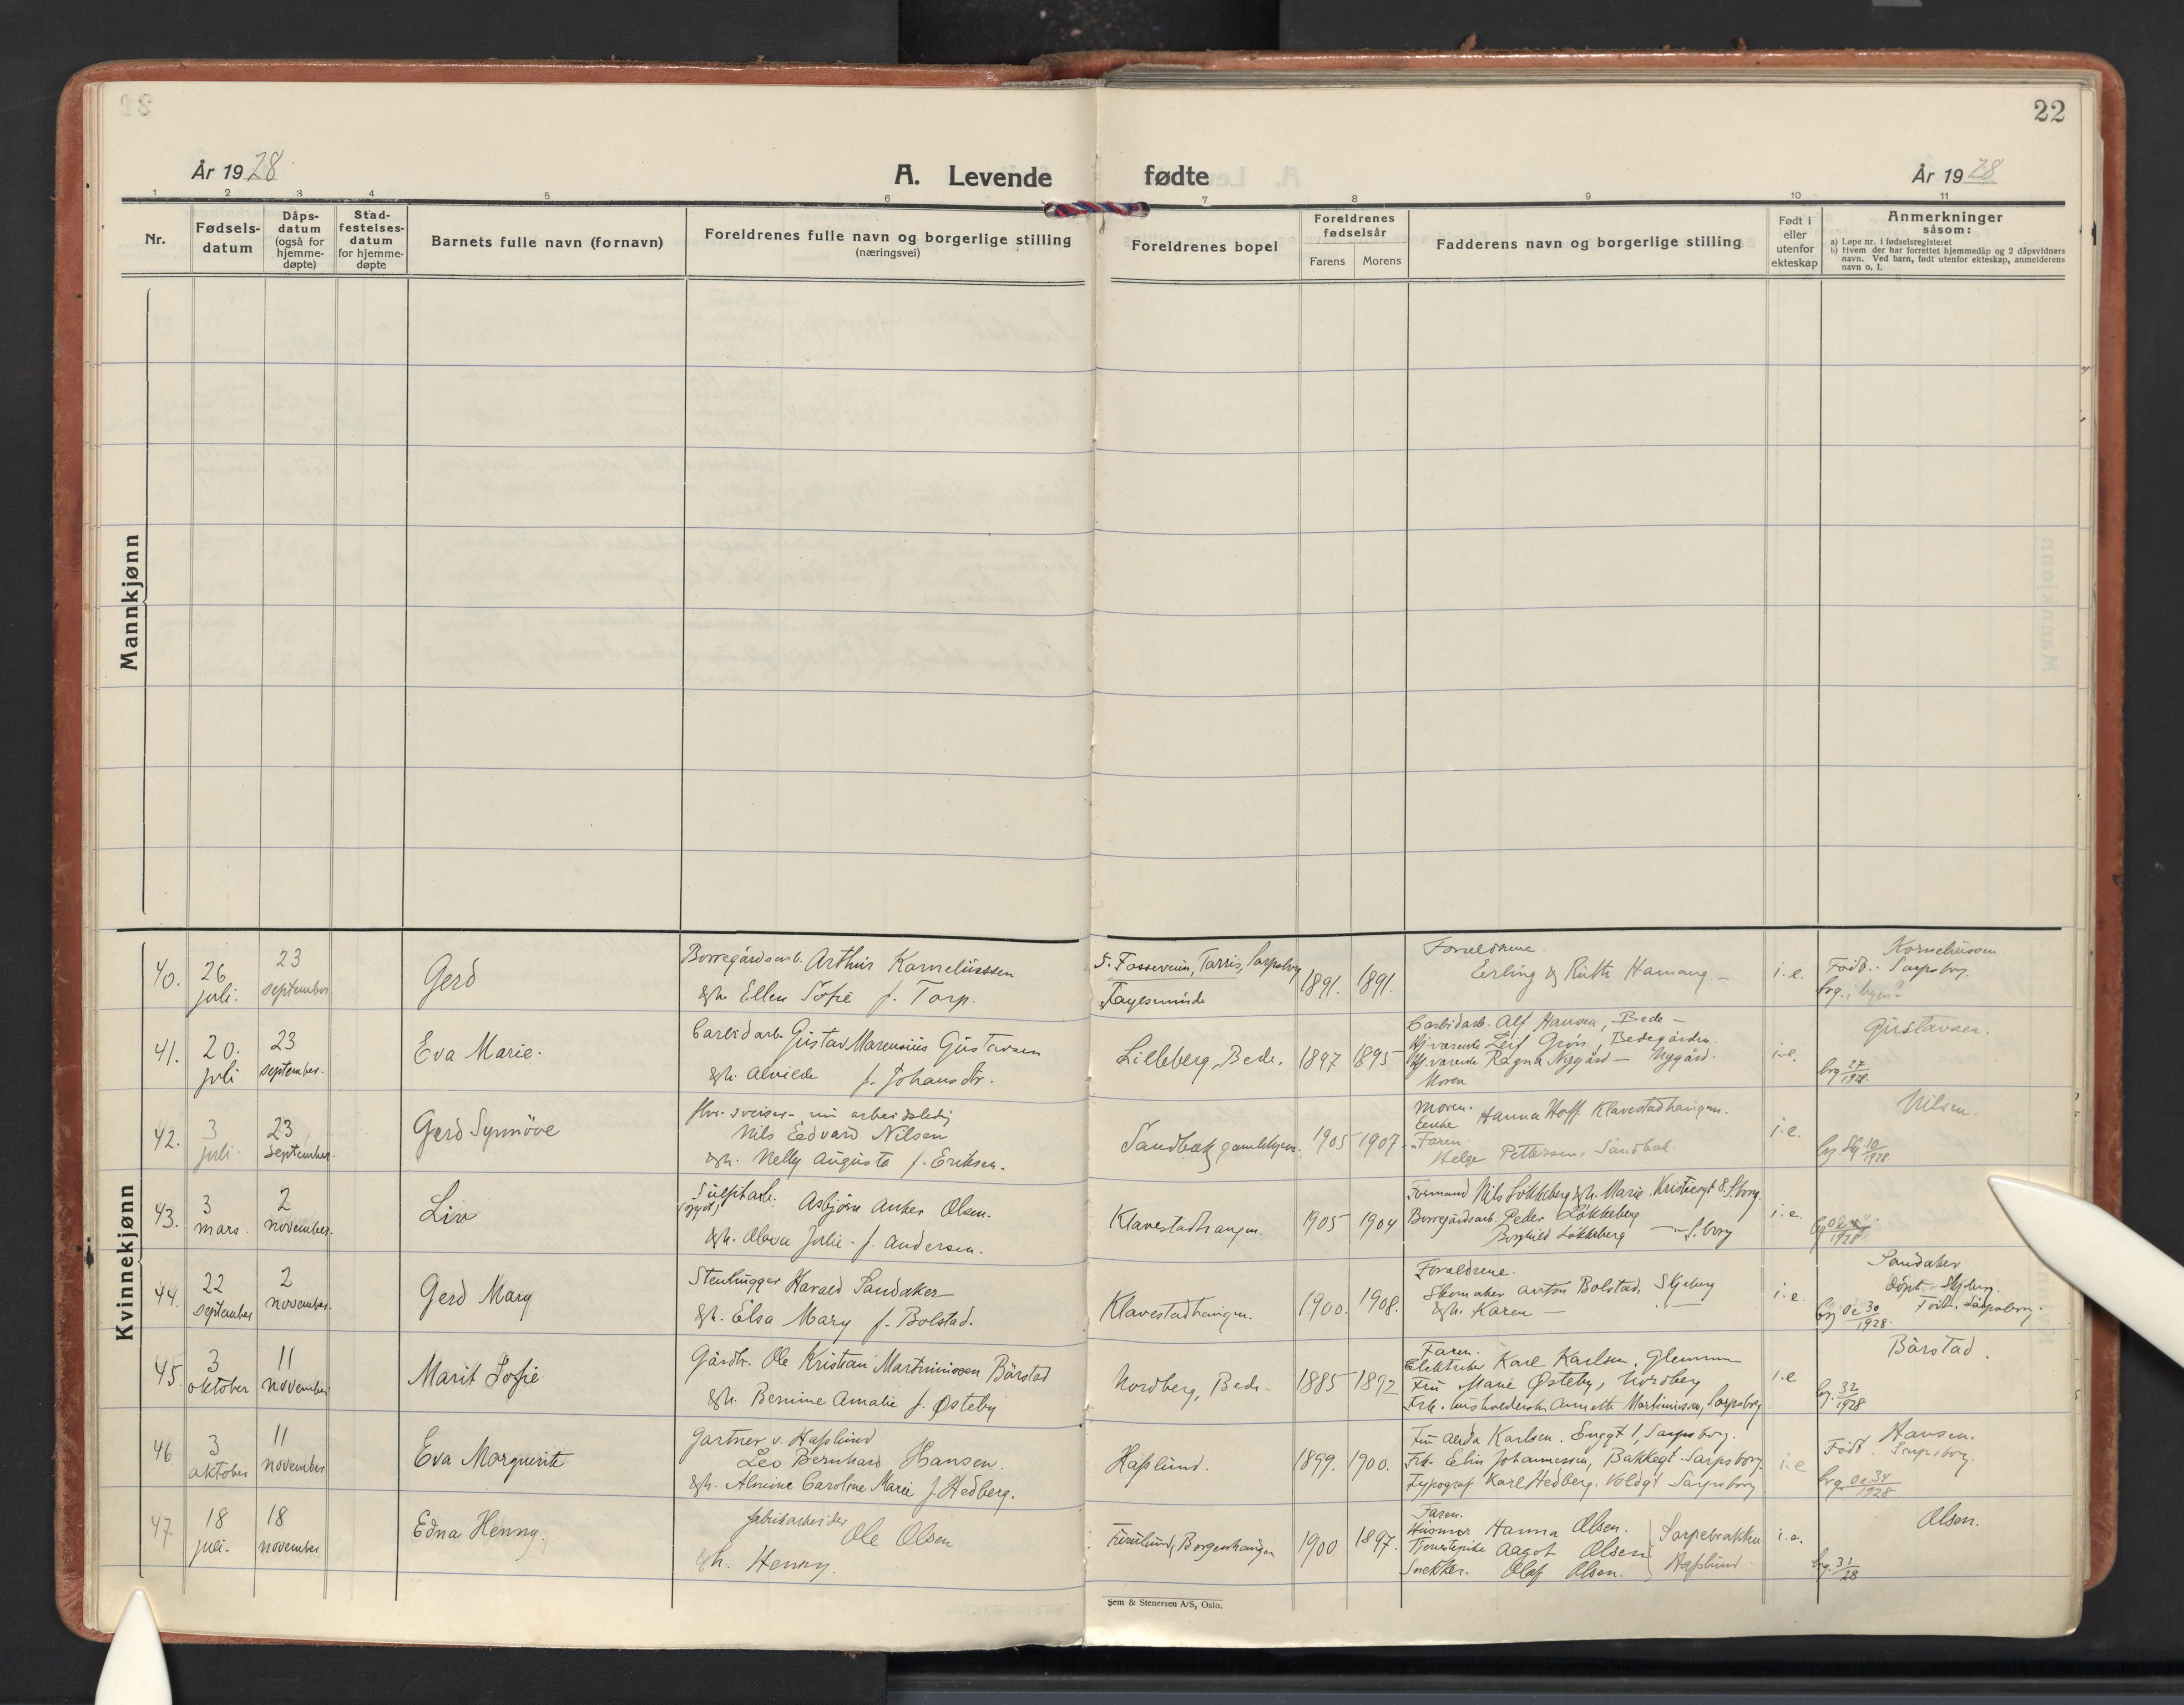 22
År 1928
A. Levende fødte
År 1928
1 2 3 4 5 6 7 8 9 10 11
Nr.
Fødsels-
datum
Dåps-
datum
(også for
hjemme-
døpte)
Stad-
festelses-
datum
for hjemme-
døpte
Barnets fulle navn (fornavn)
Foreldrenes fulle navn og borgerlige stilling
(næringsvei)
Foreldrenes bopel
Foreldrenes
fødselsår
Farens Morens
Fadderens navn og borgerlige stilling
Født i
eller
utenfor
ekteskap
Anmerkninger
såsom:
a) Løpe nr. i fødselsregisteret
b) Hvem der har forrettet hjemmedåp og 2 dåpsvidners
navn. Ved barn, født utenfor ekteskap, anmelderens
navn o. l.
Mannkjønn
Kvinnekjønn
40.
26
juli.
23
september
Gerd
Borregårdsarb. Arthur Korneliussen
Ellen Sofie f. Torp.
Tarris, Sarpsborg
1891. 1891.
Foreldrene
Erling & Ruth
i.e.
Korneliussen.
Født: Sarpsborg.
41.
20.
juli
23
september.
Eva Marie.
Carbidarb. Gustav Marensius Gustavsen
Alvilde f. Johansdtr.
Lilleberg, Bede.
1897 1895
Carbidarb. Alf Hansen, Bede -
Leif Grøn, Bedegården
Ragna Nygård - Nygård.
Moren
i.e.
Gustavsen.
27
1928.
42.
3
juli
23
september.
Gerd Synnöve
nu arbeidsledig
Nils Edvard Nilsen
Nelly Augusta f. Eriksen.
Sandbak
1905 1907
Moren.
Enke Hanna Hoff Klavestadhaugen.
Faren.
Helge Pettersen, Sandbak.
i.e.
Nilsen.
10
1928
43.
3
mars.
2
november.
Liv
Sulfitarb. Asbjørn Anker Olsen.
Olava Julie f. Andersen.
Klavestadhaugen.
1905 1904
Formand Nils Lökkeberg & h. Marie. Kristiesgt 8. S.borg.
Borregårdsarb. Peder Lökkeberg
Borghild Lökkeberg —"— S.borg
i.e.
1928
44.
22
september
2
november.
Gerd Mary
Stenhugger Harald Sandaker
Elsa Mary f. Bolstad.
Klavestadhaugen.
1900. 1908.
Foreldrene.
Skomaker Anton Bolstad, Skjeberg
Karen —
i.e.
Sandaker
døpt. Skjeberg.
Født. Sarpsborg.
30
1928.
45.
3
oktober
11
november
Marit Sofie
Gårdbr. Ole Kristian Martiniussen Bårstad
Bernine Amalie f. Østeby
Nordberg, Bede.
1885 1892
Faren.
Elektriker Karl Karlsen, Glemmen
Fru Marie Østeby, Nordberg
Annette Martinusen, Sarpsborg
i.e
Bårstad.
32
1928
46
3
oktober
11
november
Eva Margurite
Gartner v. Hafslund
Leo Bernhard Hansen.
Almine Caroline Marie f. Hedberg.
Hafslund.
1899. 1900.
Fru Alvda Karlsen. 1, Sarpsborg.
Frk. Elin Johannessen, Bakkegt. Sarpsborg.
Typograf Karl Hedberg. Voldgt Sarpsborg
i.e
Hansen.
Født: Sarpsborg.
34
1928
47.
18
juli.
18
november
Edna Henny.
fabrikarbeider
Ole Olsen
Henny.
Furulund, Borgenhaugen
1900 1897.
Faren.
Husmor Hanna Olsen.
Tjenestepike Aagot Olsen
Snekker. Olaf Olsen.
Sarpebrakken
Hafslund.
i.e.
Olsen.
31
28
Sem & Stenersen A/S, Oslo.